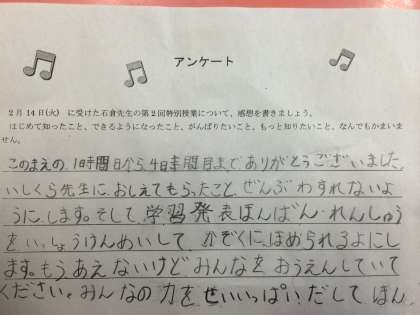 アンケート
2月14日(火) に受けた石倉先生の第2回特別授業について、感想を書きましょう。
はじめて知ったこと、できるようになったこと、がんばりたいこと、もっと知りたいこと、なんでもかまいま
せん。
このまえの、1時間目から、4時間目まで、ありがとうございました。
いしくら先生に、おしえてもらったこと、ぜんぶわすれないよ
うに、します。そして、学習発表ほんばん、れんしゅう
をいっしょうけんめいして、かぞくに、ほめられるよにし
ます。もうあえないけどみんなをおうえんしていて
ください。みんなの力をせいいっぱいだしてほん